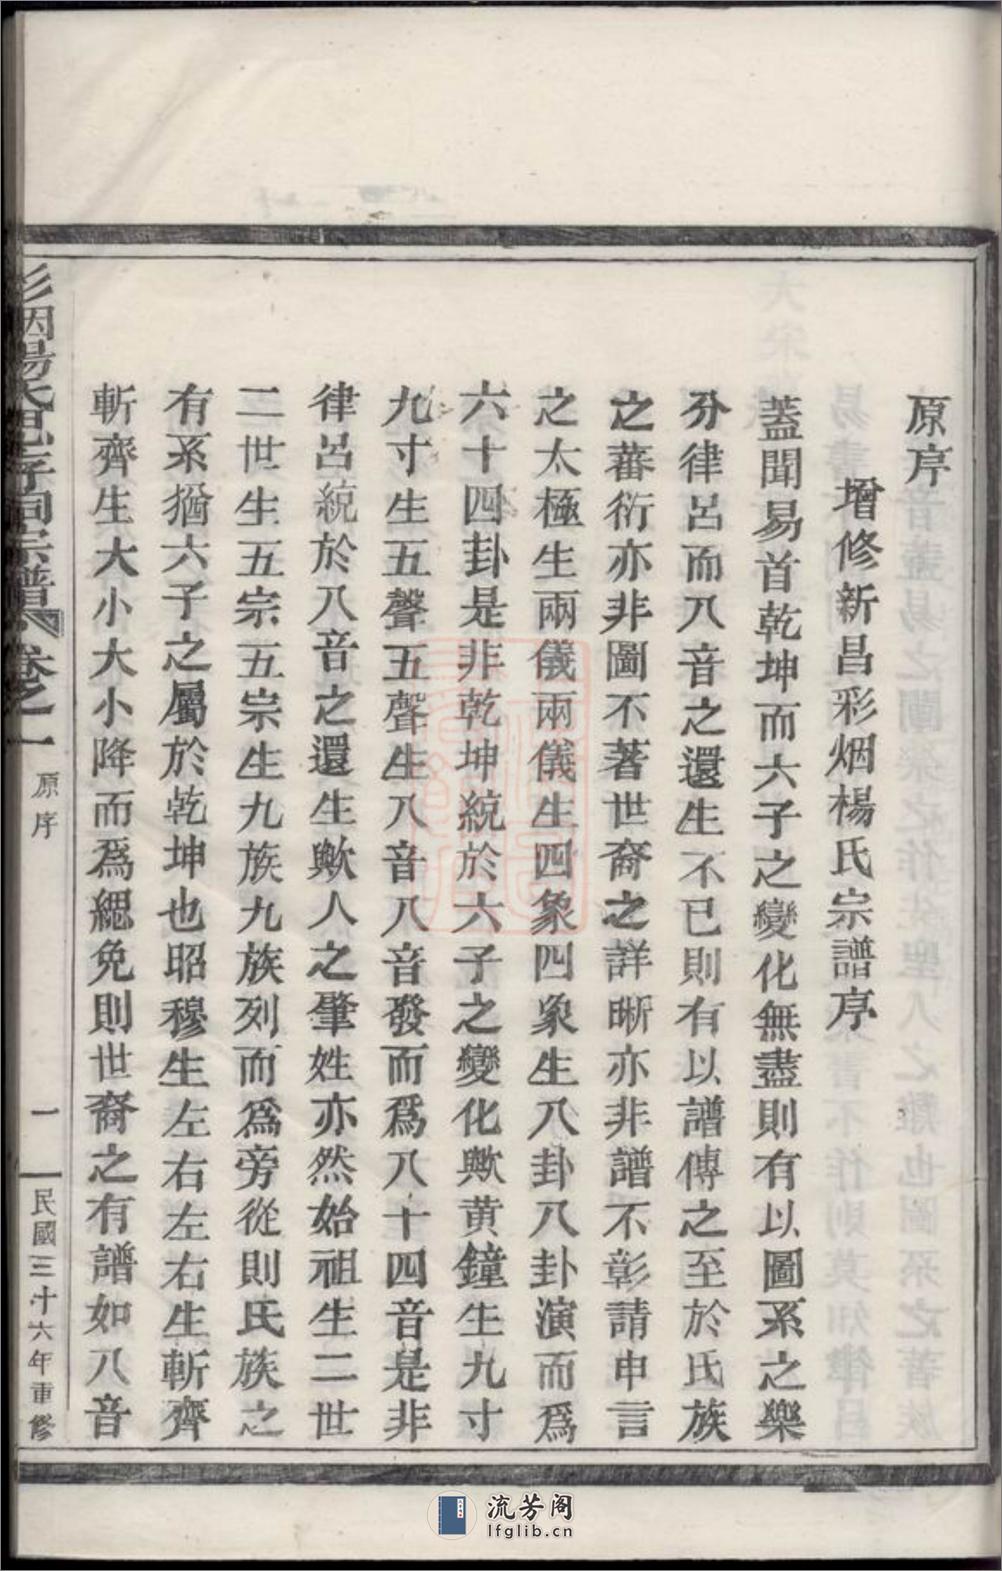 原序
增修新昌彩烟楊氏宗譜序
蓋聞易首乾坤而六子之變化無盡則有以圖系之樂
分律呂而八音之還生不已則有以譜傳之至於氏族
之蕃衍亦非圖不著世裔之詳晰亦非譜不彰請申言
之太極生兩儀兩儀生四象四象生八卦八卦演而爲
六十四卦是非乾坤統於六子之變化歟黃鐘生九寸
九寸生五聲五聲生八音八音發而爲八十四音是非
律呂統於八音之還生歟人之肇姓亦然始祖生二世
二世生五宗五宗生九族九族列而爲旁從則氏族之
有系猶六子之屬於乾坤也昭穆生左右左右生斬齊
斬齊生大小大小降而爲緦免則世裔之有譜如八音
彩烟楊氏思存祠宗譜 卷之一
原序
一
民國三十六年重修
流芳阁
lfglib.cn